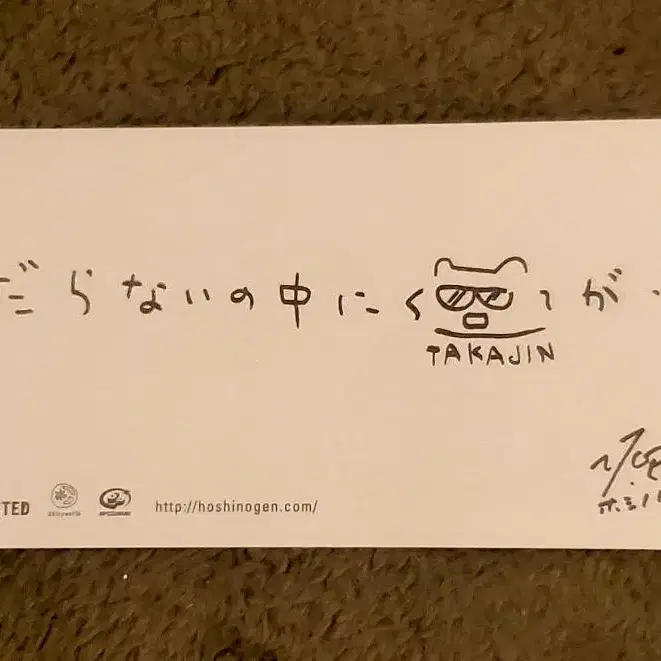 だらないの中にく
が
TAKAJIN
TED
http://hoshinogen.com/
ホシノ